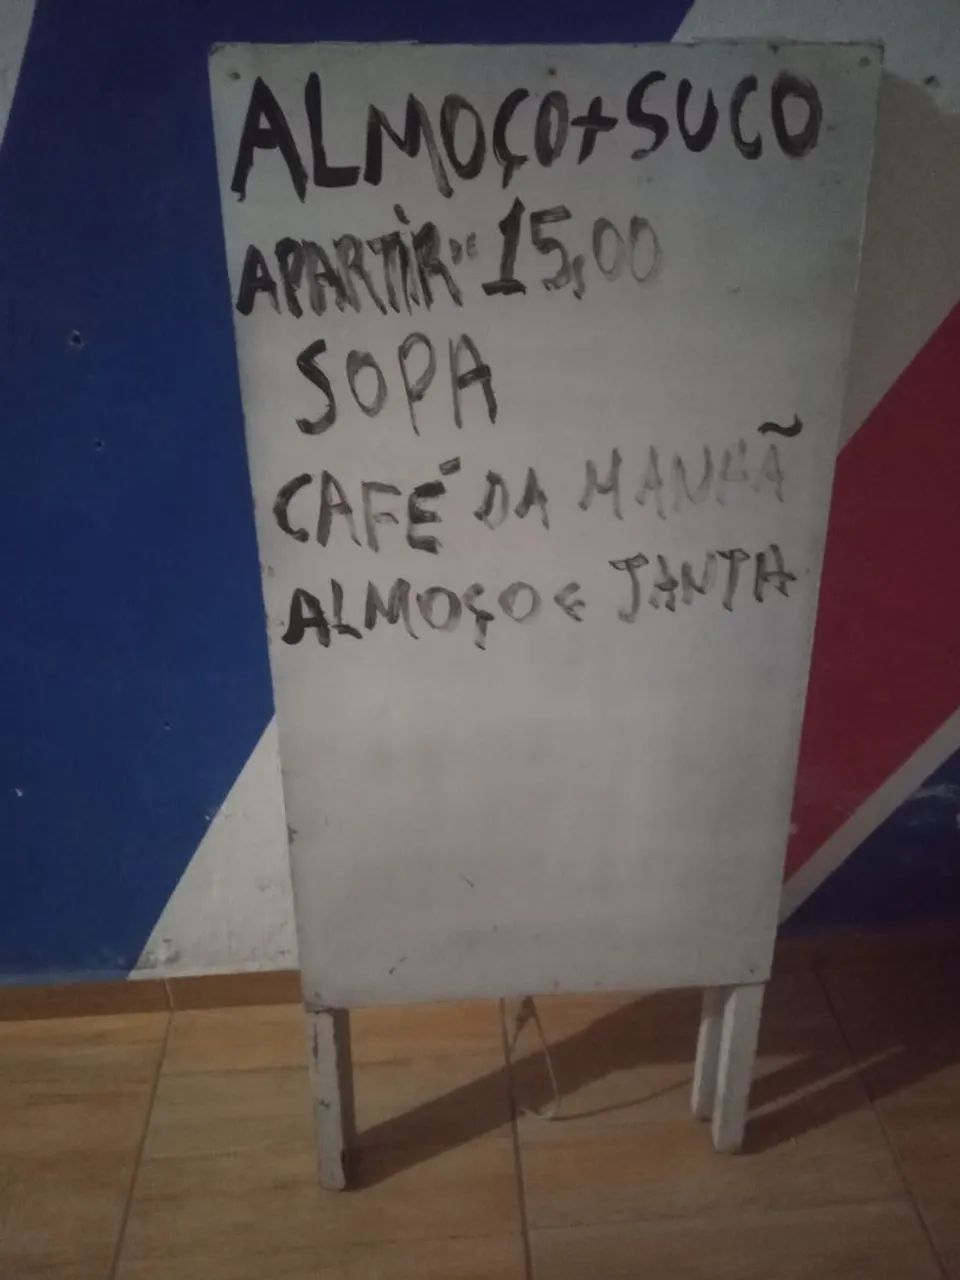 ALMOÇO+SUCO
APARTIR DE 15,00
SOPA
CAFÉ DA MANHÃ
ALMOÇO E JANTA